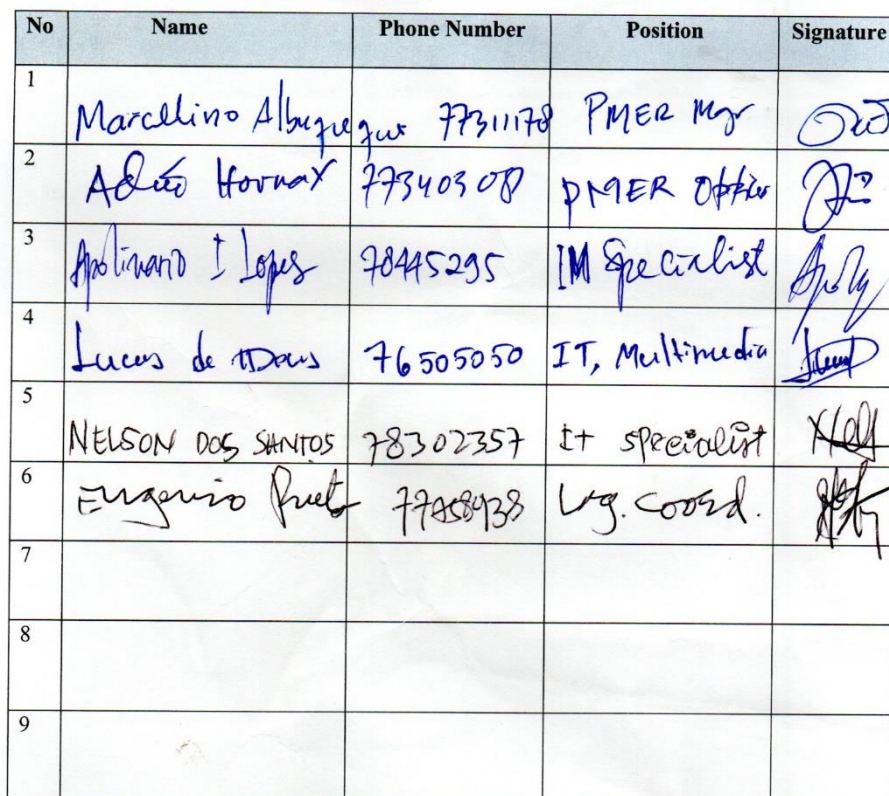 No Name Phone Number Position Signature
1 Marcellino Albuquerque 77311178 PMER Mgr
2 Hornay 77340308 PMER
3 Apolinario I Lopes 78445295 IM Specialist
4 Lucas de 76505050 IT, Multimedia
5 NELSON DOS SANTOS 78302357 IT specialist
6 Eugenio Log. Coord.
7
8
9